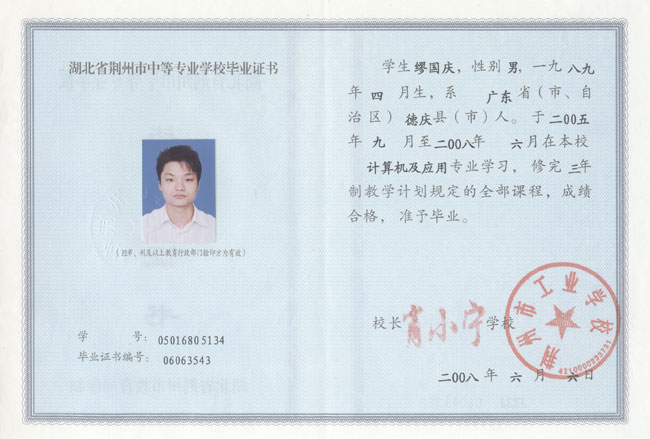 湖北省荆州市中等专业学校毕业证书
（经市、州及以上教育行政部门验印方为有效）
学 号: 05016805134
毕业证书编号: 06063543
学生 缪国庆，性别 男，一九 八九
年 四 月生，系 广东 省（市、自
治区）德庆 县（市）人。于 二00五
年 九 月至 二00八 年 六 月在本校
计算机及应用 专业学习，修完 三 年
制教学计划规定的全部课程，成绩
合格，准予毕业。
校长 肖小宁 学校
荆州市工业学校
二00八 年 六 月 六 日